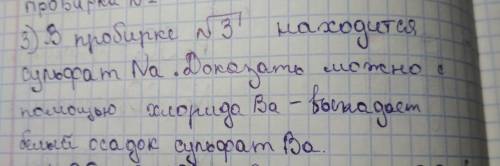 пробирка №
3) В пробирке √3 находится
сульфат Na. Доказать можно с
помощью хлорида Ba - выпадает
белый осадок сульфат Ba.